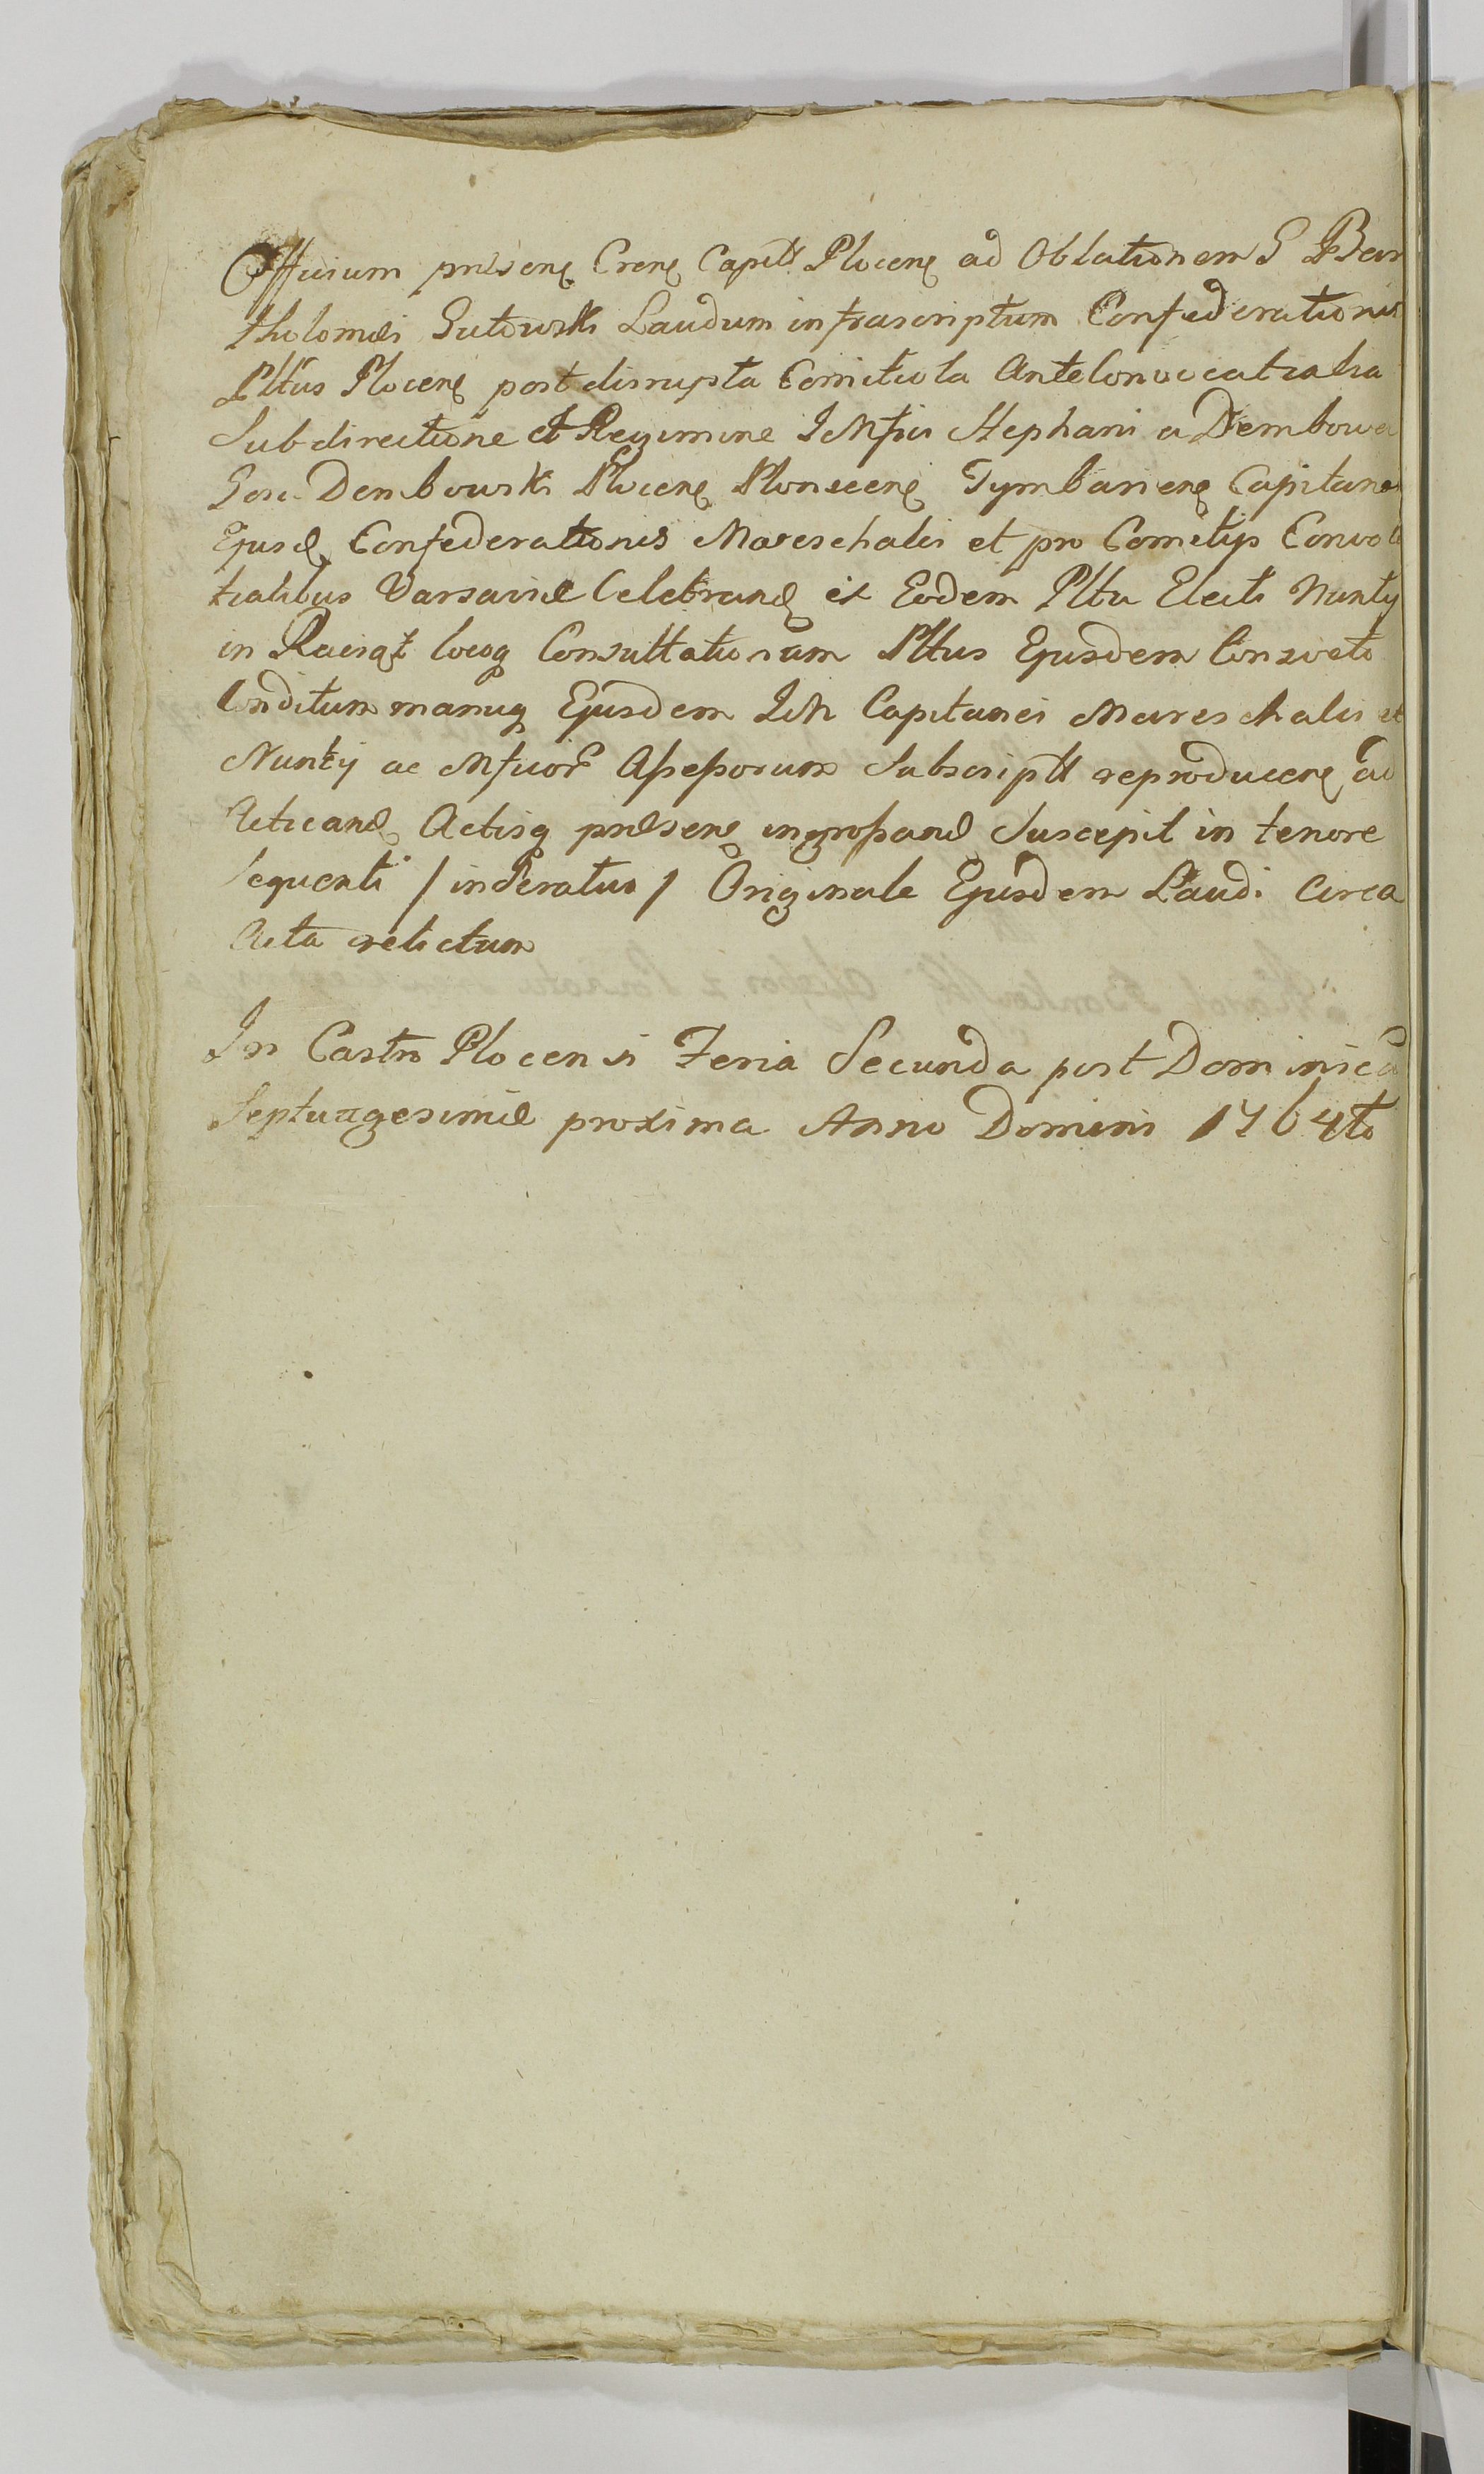 Officium prñsens Crens Capitle Plocens ad Oblationem G Bar
tholomæi Gutowski Laudum infrascriptum Confederationis
Plttus Plocens post disrupta Comitiola Anteconvocatialia
Sub directione et Regimine IMfici Stephani a Dembowa
Gora Dembowski Plocens Plonscens Tymbariens Capitanei
Ejusd Confederationis Mareschalci et pro Comitijs Convoca
tialibus Varsaviæ Celebrand ex Eodem Plttu Electi Nuntij
in Raciąż locoq Consultationum Plttus Ejusdem Consveto
Conditum manuq Ejusdem IM Capitanei Mareschalci et
Nuntij ac Mficor Assessorum Subscriptt reproducens ad
Acticand Actisq prñsens ingrossand Suscepit in tenore
Sequenti / inseratur / Originale Ejusdem Laudi Circa
Acta relictum
In Castro Plocensi Feria Secunda post Dominicã
Septuagesimæ proxima Anno Domini 1764to